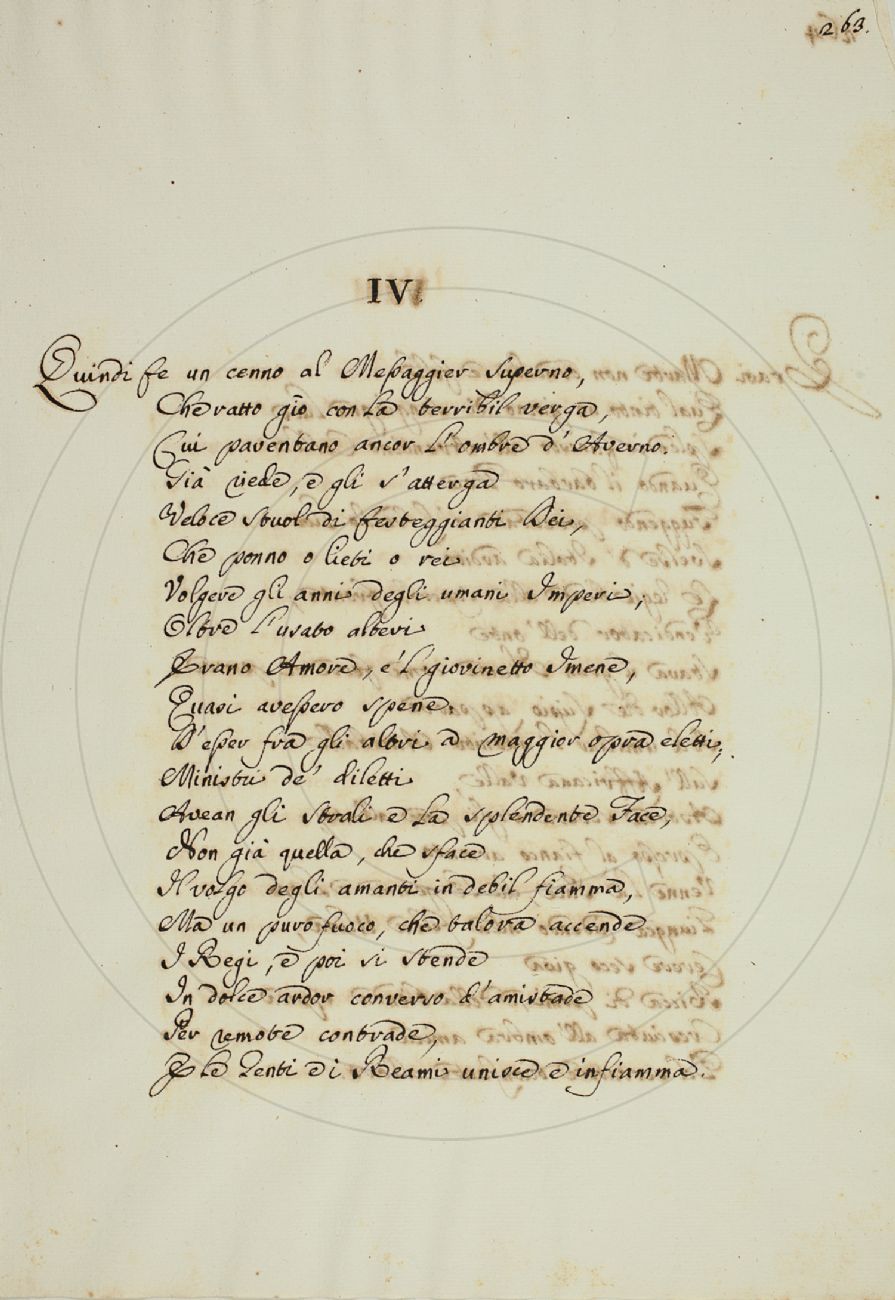 263.
IV.
Quindi fe un cenno al Messaggier superno,
Che ratto gío con la terribil verga,
Cui paventano ancor l'ombre d'Averno.
Già riede, e gli s'atterga
Veloce stuol di festeggianti Dei,
Che ponno o lieti o rei
Volgere gli anni degli umani Imperi,
Oltre l'usato alteri
Erano Amore, e 'l giovinetto Imene,
Quasi avessero spene
D'esser fra gli altri a maggior opra eletti;
Ministri de' diletti
Avean gli strali e la splendente Face,
Non già quella, che sface
Il volgo degli amanti in debil fiamma,
Ma un puro fuoco, che talora accende
I Regi, e poi si stende
In dolce ardor converso d'amistade
Per remote contrade,
E le Genti e i Reami unisce e infiamma.